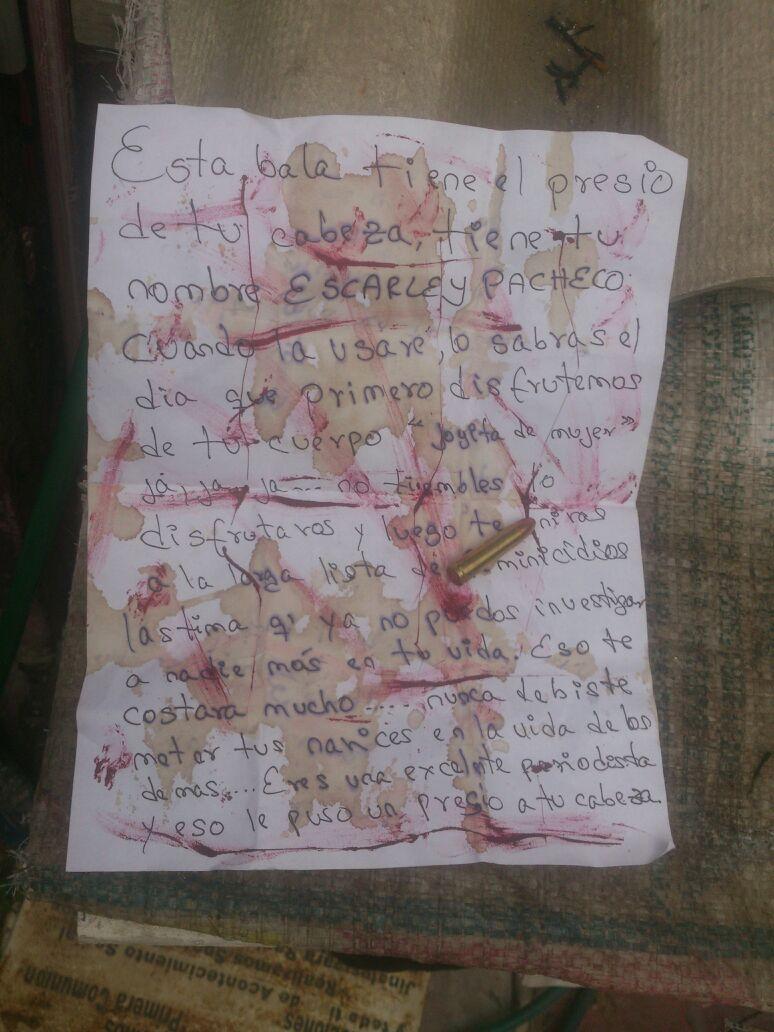 Esta bala tiene el presio
de tu cabeza, tiene tu
nombre ESCARLEY PACHECO.
Cuando la usaré, lo sabras el
dia que primero disfrutemos
de tu cuerpo "Joyita de mujer"
já, ja.. ja.... no tiembles lo
disfrutaras y luego te
a la larga lista de
lastima q' ya no puedas investigar
a nadie más en tu vida. Eso te
costara mucho..... nunca debiste
meter tus narices en la vida de los
demas.... Eres una excelnte periodista
y eso le puso un presio a tu cabeza.
Primera Comunion
de Acontecimiento
Realizamos
y toda ti